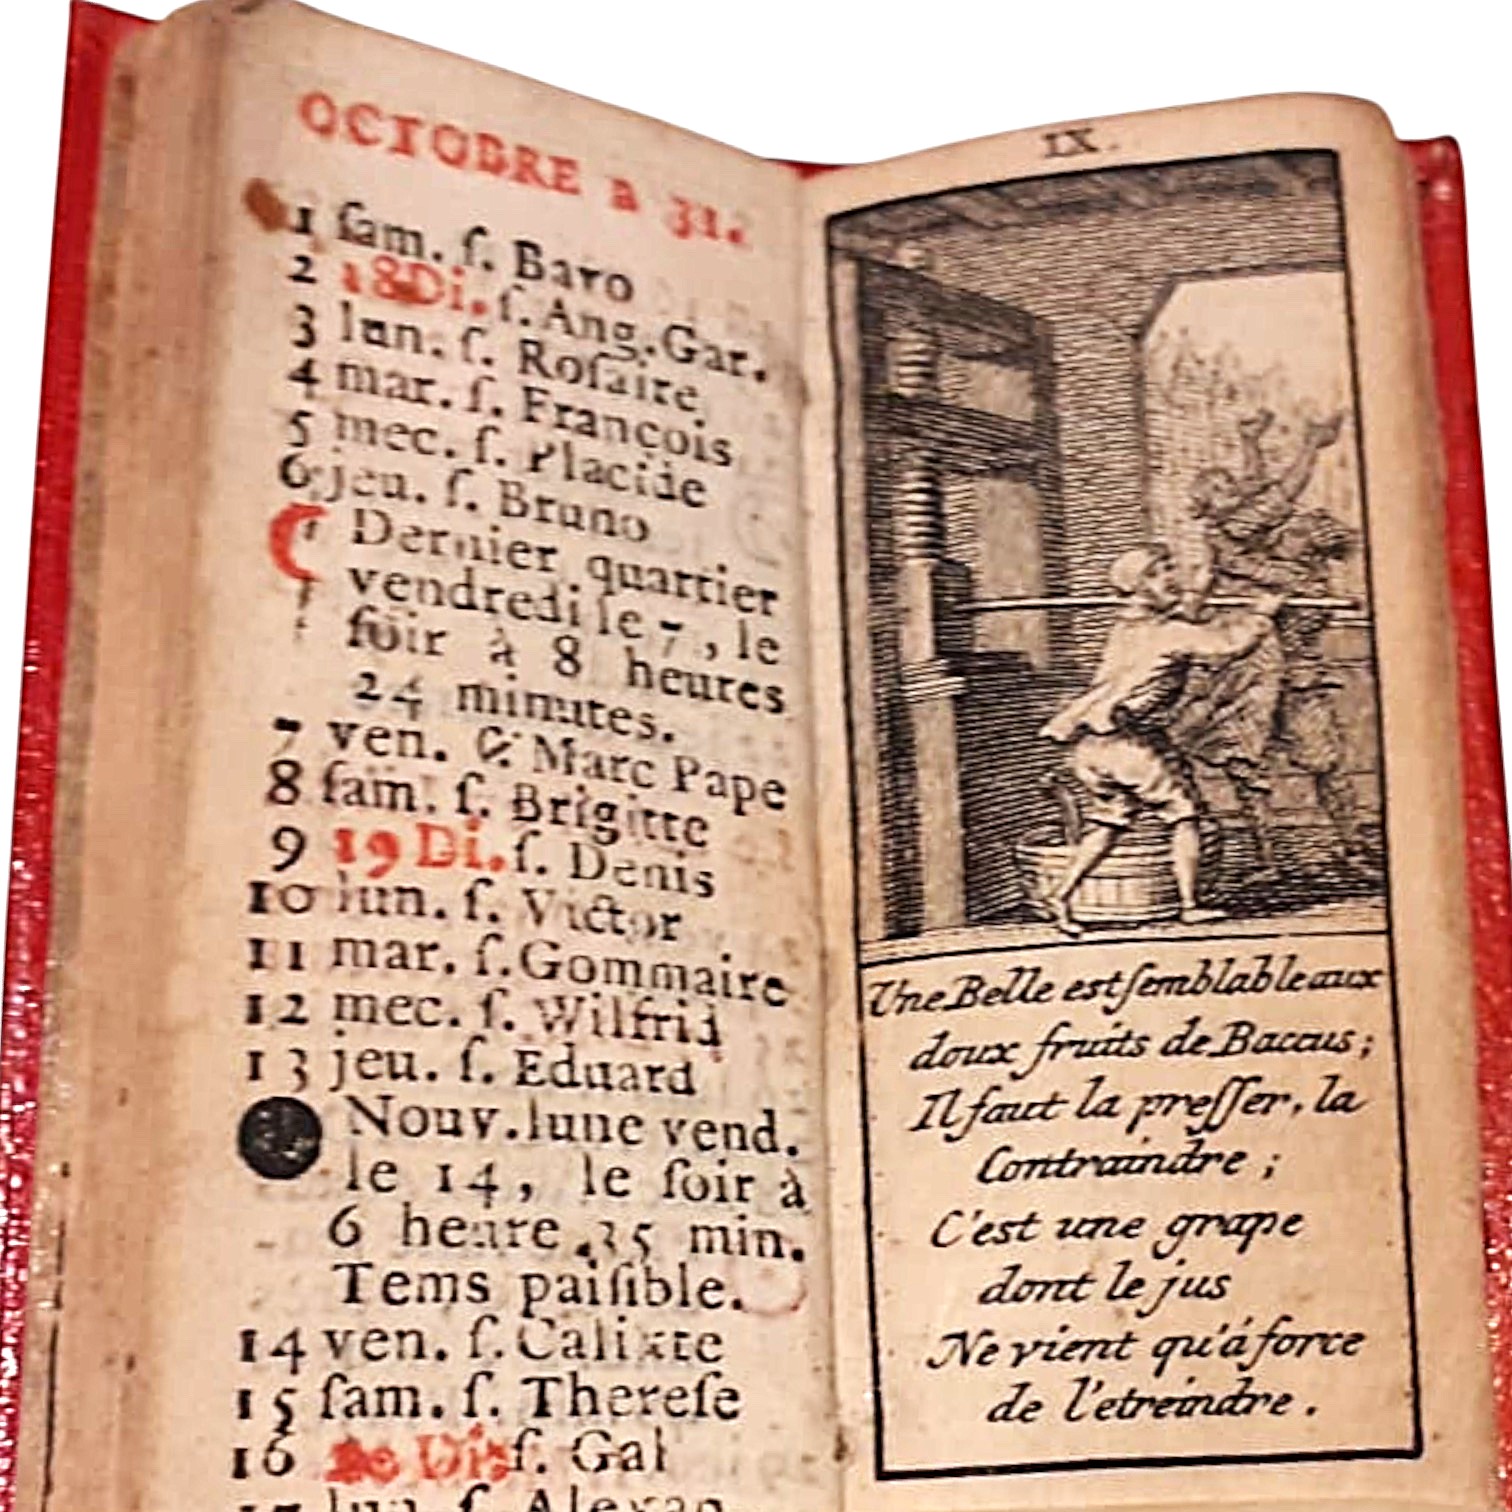 OCTOBRE a 31.
1 ſam. ſ. Bavo
2 18 Di. ſ. Ang. Gar.
3 lun. ſ. Roſaire
4 mar. ſ. François
5 mec. ſ. Placide
6 jeu. ſ. Bruno
Dernier quartier
vendredi le 7, le
ſoir à 8 heures
24 minutes.
7 ven. & Marc Pape
8 ſam. ſ. Brigitte
9 19 Di. ſ. Denis
10 lun. ſ. Victor
11 mar. ſ. Gommaire
12 mec. ſ. Wilfrid
13 jeu. ſ. Eduard
Nouv. lune vend.
le 14, le ſoir à
6 heure 35 min.
Tems paiſible.
14 ven. ſ. Calixte
15 ſam. ſ. Thereſe
16 20 Di. ſ. Gal
17 lun. ſ. Alexan
IX.
Une Belle est ſemblable aux
doux fruits de Baccus;
Il faut la preſſer, la
Contraindre;
C'est une grape
dont le jus
Ne vient qu'á force
de l'etreindre.